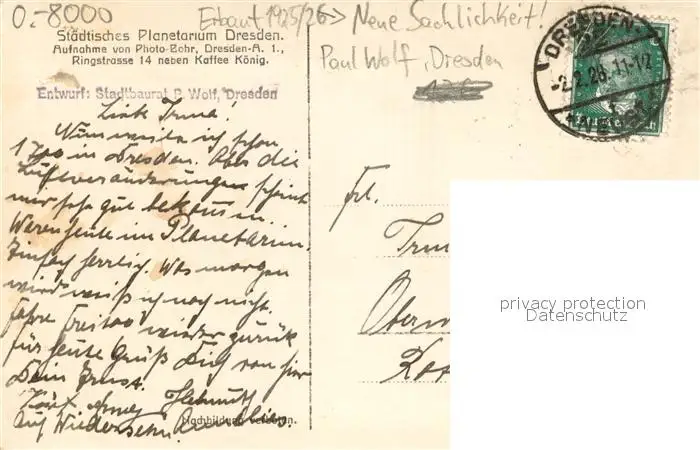 0.-8000
Erbaut 1925/26 → Neue Sachlichkeit!
Städtisches Planetarium Dresden.
Aufnahme von Photo-Bohr, Dresden-A. 1.,
Ringstrasse 14 neben Kaffee König.
Paul Wolf, Dresden
Entwurf: Stadtbaurat P. Wolf, Dresden
DRESDEN
-2.2.28.11-12
Liebe Irma!
Nun weile ich schon
in Dresden. Aber die
Luftveränderungen scheint
mir sehr gut bekomm
Waren heute im Planetarium.
Einfach herrlich. Was morgen
wird weiß ich noch nicht.
Fahre Freitag wieder zurück
für heute Grüß Dich von hier
Dein Ernst.
Helmuth
Auf Wiedersehn
Nachbildung verboten.
Frl.
privacy protection
Datenschutz